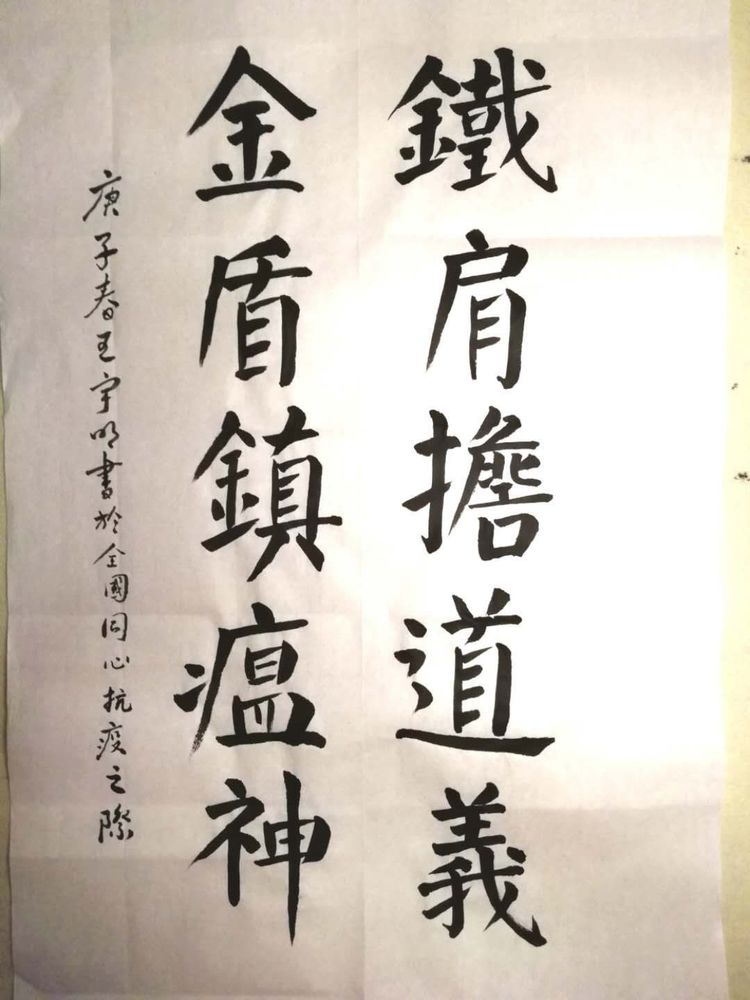 鐵肩擔道義
金盾鎮瘟神
庚子春王宇明書於全國同心抗疫之際